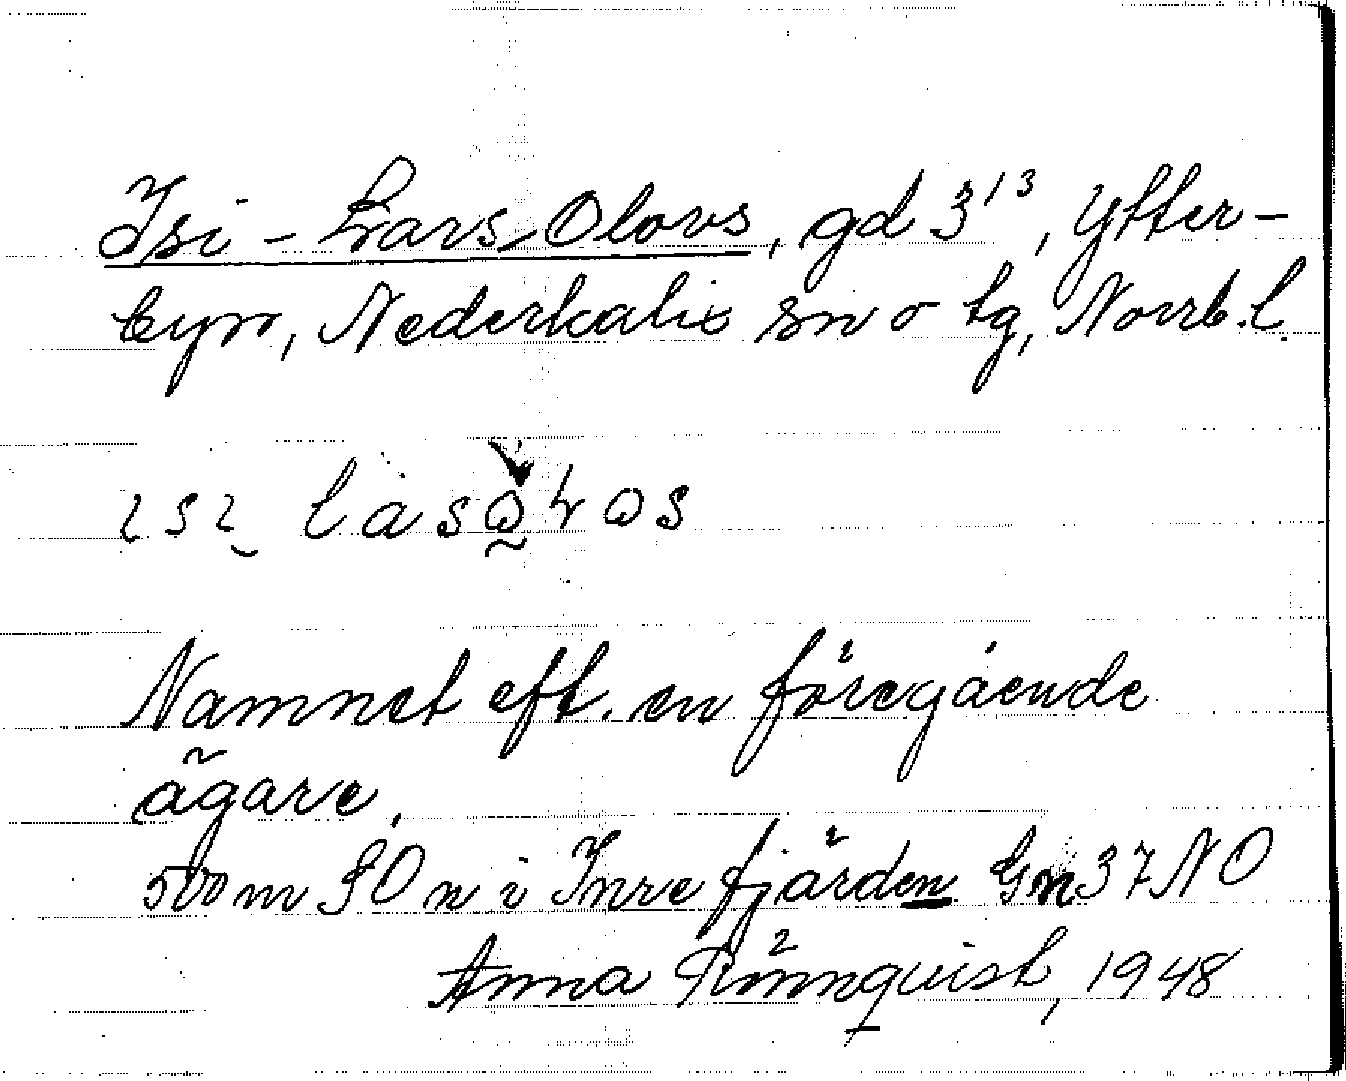 Isi-Lars-Olovs, gd 3¹³, Ytter-
byn, Nederkalix sn o tg, Norrb. l.
Namnet eft. en föregående
ägare.
500 m SO n i Inre fjärden Gn 37 NO
Anna Rönnquist, 1948